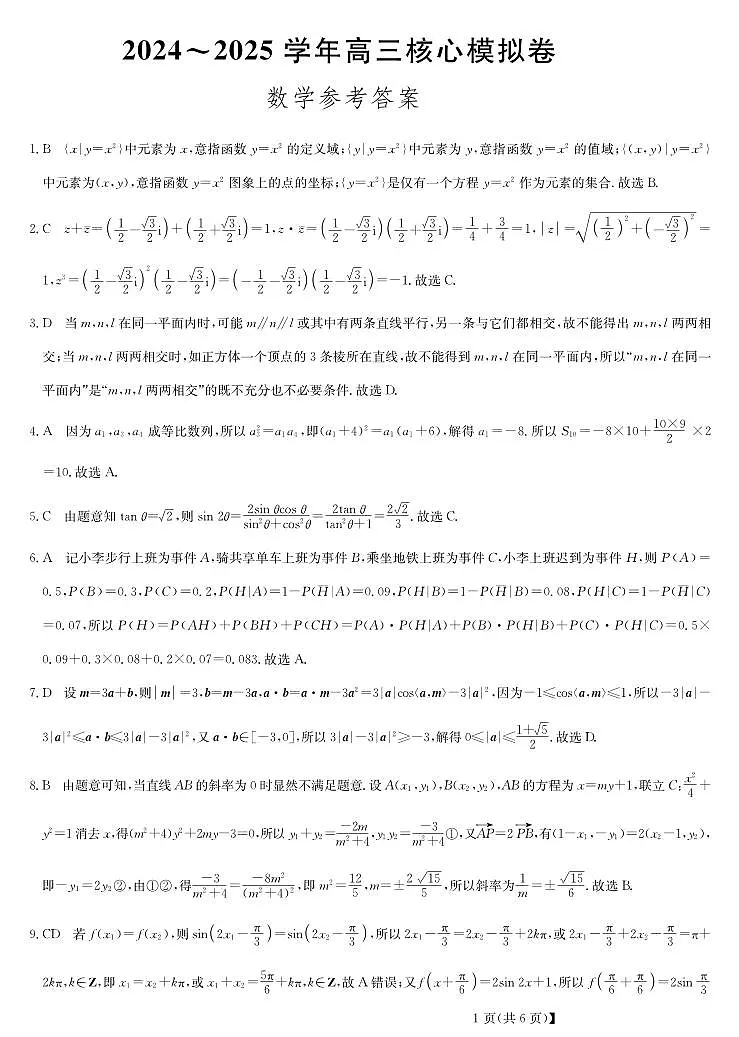 2024～2025 学年高三核心模拟卷
数学参考答案
1. B {x|y=x²}中元素为 x,意指函数 y=x² 的定义域;{y|y=x²}中元素为 y,意指函数 y=x² 的值域;{(x,y)|y=x²}
中元素为(x,y),意指函数 y=x² 图象上的点的坐标;{y=x²}是仅有一个方程 y=x² 作为元素的集合. 故选 B.
2. C z+z̄=(1/2-√3/2 i)+(1/2+√3/2 i)=1,z·z̄=(1/2-√3/2 i)(1/2+√3/2 i)=1/4+3/4=1,|z|=√((1/2)²+(-√3/2)²)=
1,z³=(1/2-√3/2 i)²(1/2-√3/2 i)=(-1/2-√3/2 i)(1/2-√3/2 i)=-1. 故选 C.
3. D 当 m,n,l 在同一平面内时,可能 m∥n∥l 或其中有两条直线平行,另一条与它们都相交,故不能得出 m,n,l 两两相
交;当 m,n,l 两两相交时,如正方体一个顶点的 3 条棱所在直线,故不能得到 m,n,l 在同一平面内,所以“m,n,l 在同一
平面内”是“m,n,l 两两相交”的既不充分也不必要条件. 故选 D.
4. A 因为 a₁,a₃,a₄ 成等比数列,所以 a₃²=a₁a₄,即(a₁+4)²=a₁(a₁+6),解得 a₁=-8. 所以 S₁₀=-8×10+(10×9)/2×2
=10. 故选 A.
5. C 由题意知 tan θ=√2,则 sin 2θ=(2sin θcos θ)/(sin²θ+cos²θ)=(2tan θ)/(tan²θ+1)=(2√2)/3. 故选 C.
6. A 记小李步行上班为事件 A,骑共享单车上班为事件 B,乘坐地铁上班为事件 C,小李上班迟到为事件 H,则 P(A)=
0.5,P(B)=0.3,P(C)=0.2,P(H|A)=1-P(H̄|A)=0.09,P(H|B)=1-P(H̄|B)=0.08,P(H|C)=1-P(H̄|C)
=0.07,所以 P(H)=P(AH)+P(BH)+P(CH)=P(A)·P(H|A)+P(B)·P(H|B)+P(C)·P(H|C)=0.5×
0.09+0.3×0.08+0.2×0.07=0.083. 故选 A.
7. D 设 m=3a+b,则|m|=3,b=m-3a,a·b=a·m-3a²=3|a|cos⟨a,m⟩-3|a|²,因为-1≤cos⟨a,m⟩≤1,所以-3|a|-
3|a|²≤a·b≤3|a|-3|a|²,又 a·b∈[-3,0],所以 3|a|-3|a|²≥-3,解得 0≤|a|≤(1+√5)/2. 故选 D.
8. B 由题意可知,当直线 AB 的斜率为 0 时显然不满足题意. 设 A(x₁,y₁),B(x₂,y₂),AB 的方程为 x=my+1,联立 C:x²/4+
y²=1 消去 x,得(m²+4)y²+2my-3=0,所以 y₁+y₂=(-2m)/(m²+4),y₁y₂=(-3)/(m²+4)①,又AP→=2 PB→,有(1-x₁,-y₁)=2(x₂-1,y₂),
即-y₁=2y₂②,由①②,得(-3)/(m²+4)=(-8m²)/(m²+4)²,即 m²=12/5,m=±(2√15)/5,所以斜率为1/m=±√15/6. 故选 B.
9. CD 若 f(x₁)=f(x₂),则 sin(2x₁-π/3)=sin(2x₂-π/3),所以 2x₁-π/3=2x₂-π/3+2kπ,或 2x₁-π/3+2x₂-π/3=π+
2kπ,k∈Z,即 x₁=x₂+kπ,或 x₁+x₂=5π/6+kπ,k∈Z,故 A 错误;又 f(x+π/6)=2sin 2x+1,所以 f(π/6+π/6)=2sin π/3
1 页(共 6 页)】